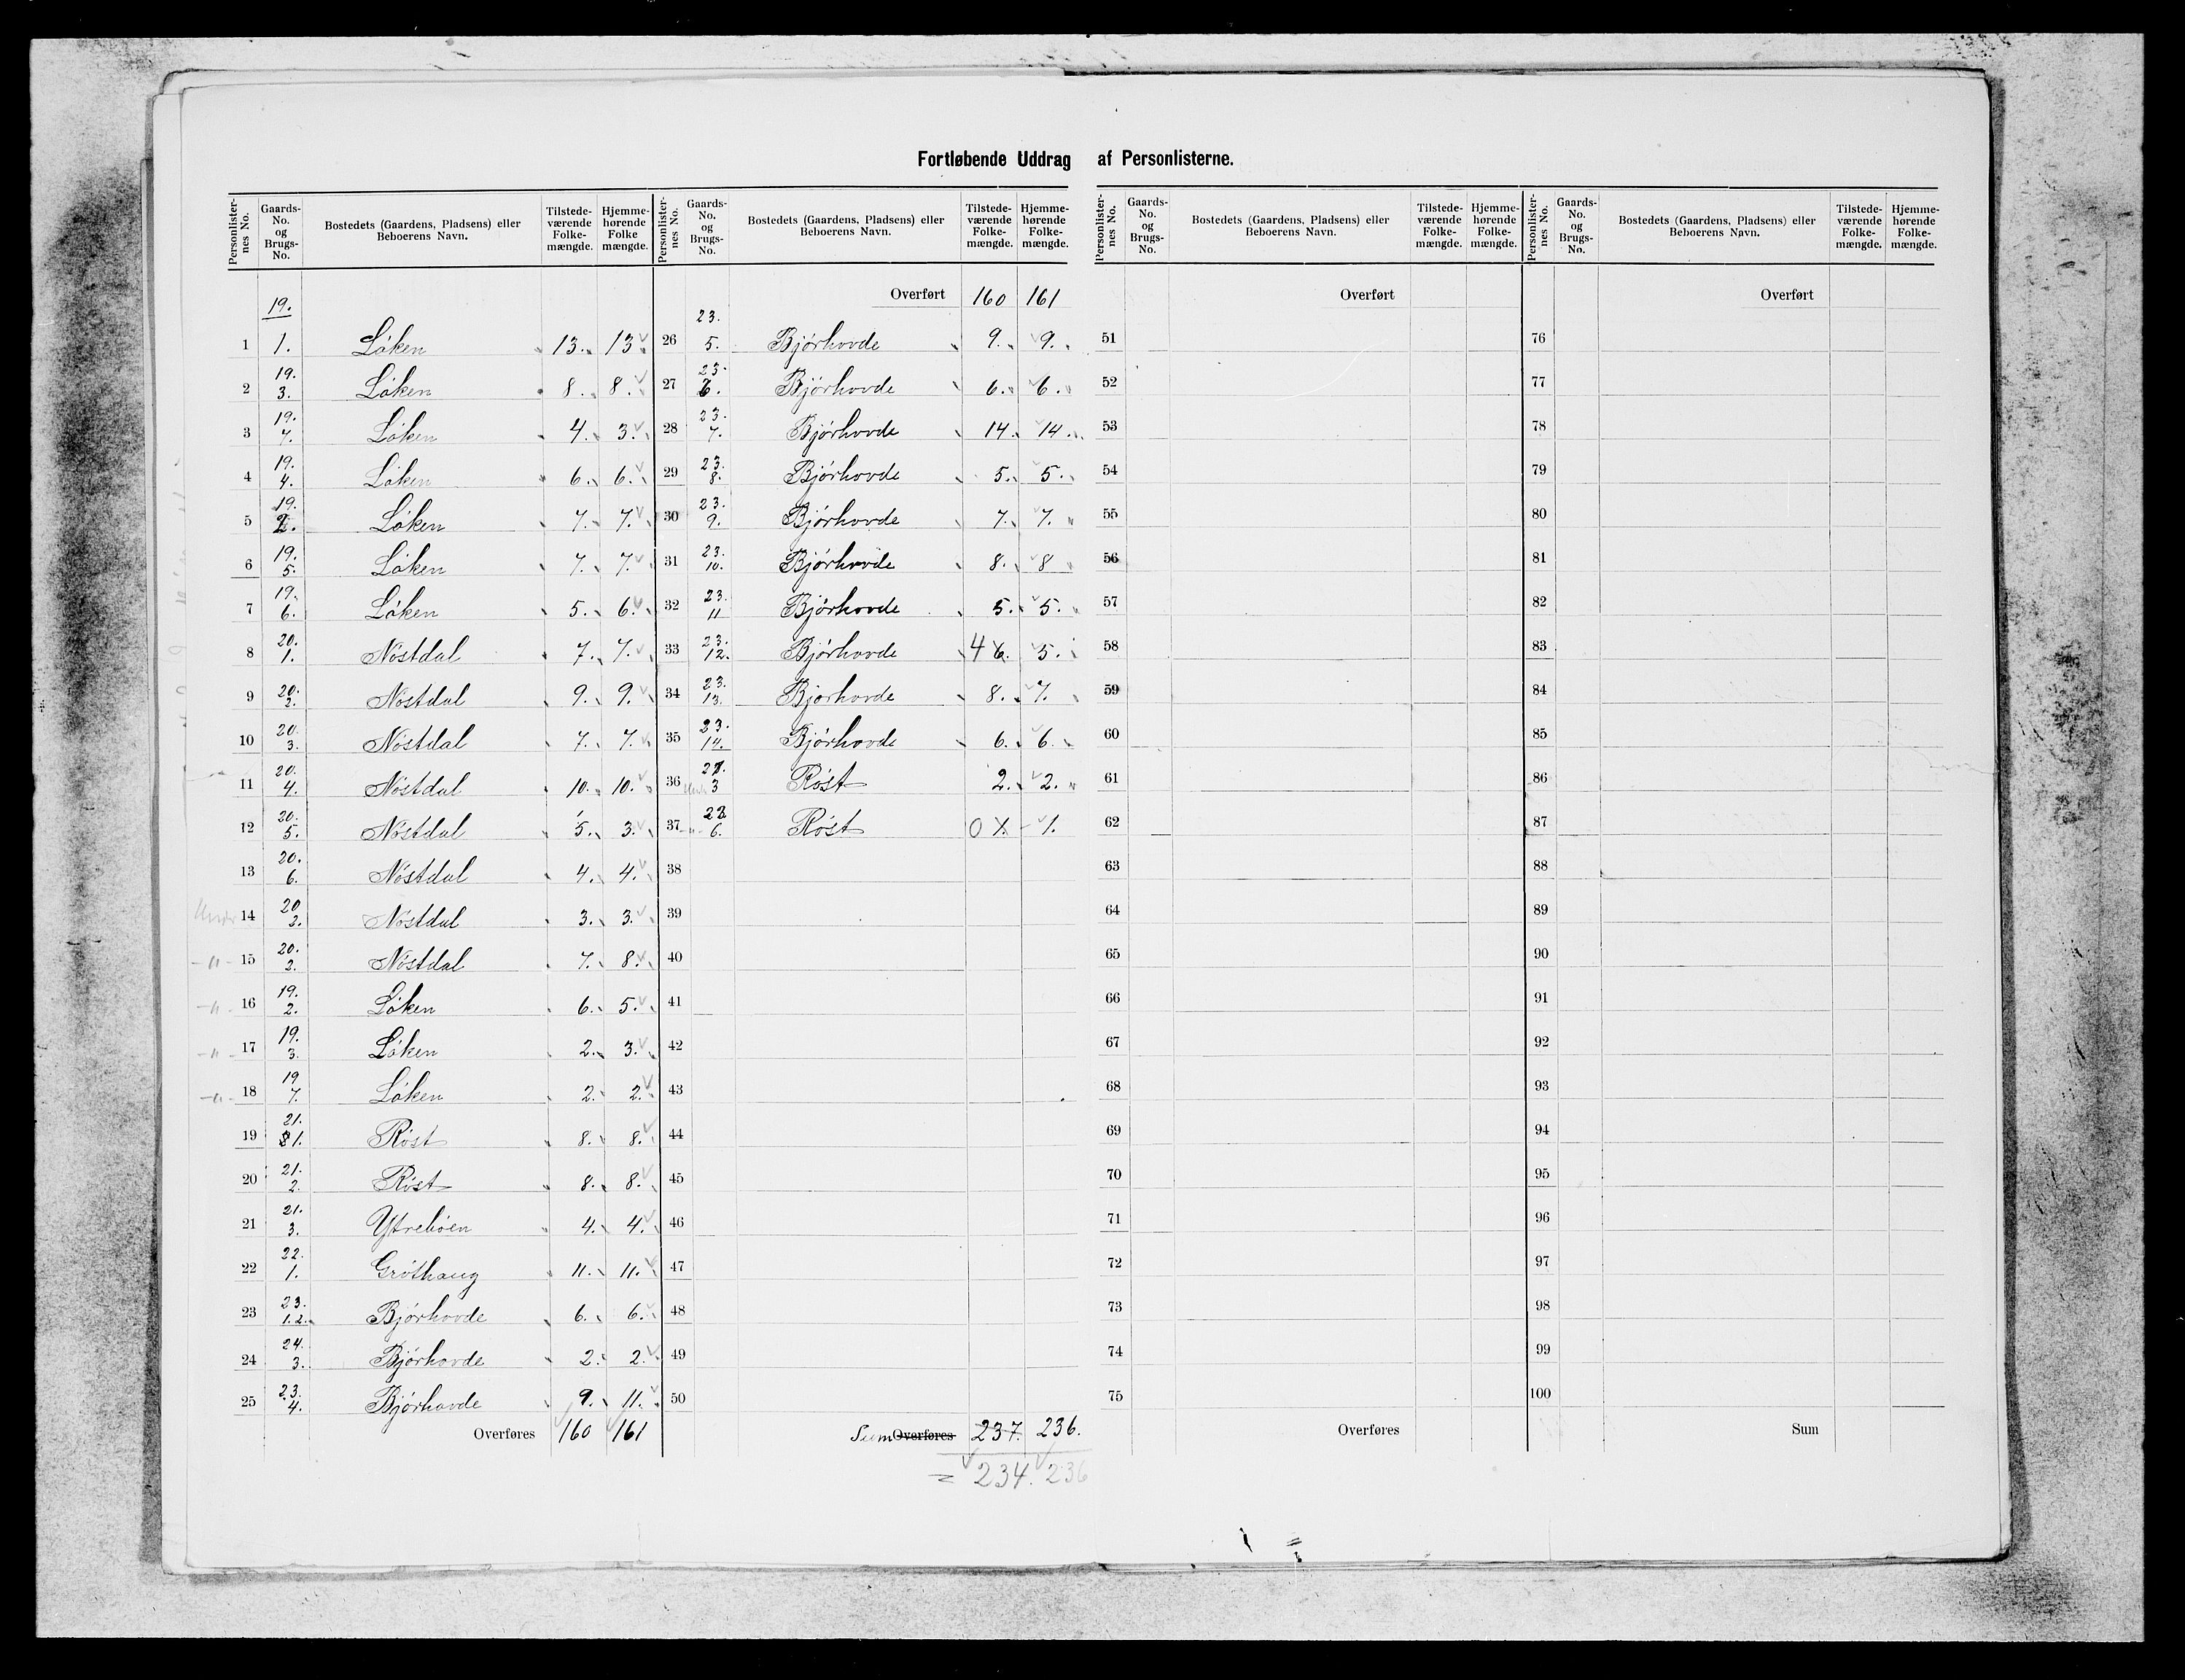 Fortløbende Uddrag af Personlisterne.
Personlister-nes No. | Gaards-No. og Brugs-No. | Bostedets (Gaardens, Pladsens) eller Beboerens Navn. | Tilstede-værende Folke-mængde. | Hjemme-hørende Folke mængde.
1 | 19. 1. | Löken | 13. | 13.
2 | 19. 3. | Löken | 8. | 8.
3 | 19. 7. | Löken | 4. | 3.
4 | 19. 4. | Löken | 6. | 6.
5 | 19. 2. | Löken | 7. | 7.
6 | 19. 5. | Löken | 7. | 7.
7 | 19. 6. | Löken | 5. | 6.
8 | 20. 1. | Nöstdal | 7. | 7.
9 | 20. 2. | Nöstdal | 9. | 9.
10 | 20. 3. | Nöstdal | 7. | 7.
11 | 20. 4. | Nöstdal | 10. | 10.
12 | 20. 5. | Nöstdal | 5. | 3.
13 | 20. 6. | Nöstdal | 4. | 4.
Under 14 | 20 2. | Nöstdal | 3. | 3.
-"- 15 | 20. 2. | Nöstdal | 7. | 8.
-"- 16 | 19. 2. | Löken | 6. | 5.
-"- 17 | 19. 3. | Löken | 2. | 3.
-"- 18 | 19 7. | Löken | 2. | 2.
19 | 21. 1. | Röst | 8. | 8.
20 | 21. 2. | Röst | 8. | 8.
21 | 21. 3. | Ytreböen | 4. | 4.
22 | 22. 1. | Gröthaug | 11. | 11.
23 | 23. 1.2. | Bjórhovde | 6. | 6.
24 | 24. 3. | Bjórhovde | 2. | 2.
25 | 23. 4. | Bjórhovde | 9. | 11.
Overføres | 160 | 161
Personlister-nes No. | Gaards-No. og Brugs-No. | Bostedets (Gaardens, Pladsens) eller Beboerens Navn. | Tilstede-værende Folke-mængde. | Hjemme-hørende Folke-mængde.
Overført | 160 | 161
26 | 23. 5. | Bjórhovde | 9. | 9.
27 | 23. 6. | Bjórhovde | 6. | 6.
28 | 23. 7. | Bjórhovde | 14. | 14.
29 | 23. 8. | Bjórhovde | 5. | 5.
30 | 23. 9. | Bjórhovde | 7. | 7.
31 | 23. 10. | Bjórhovde | 8. | 8
32 | 23. 11 | Bjórhovde | 5. | 5.
33 | 23. 12. | Bjórhovde | 4 6. | 5.
34 | 23. 13. | Bjórhovde | 8. | 7.
35 | 23. 14. | Bjórhovde | 6. | 6.
36 | Under 21. 3 | Röst | 2. | 2.
37 | -"- 6. | Röst | 0 1. | 1.
38
39
40
41
42
43
44
45
46
47
48
49
50
Sum Overføres | 237. | 236.
= 234. 236
Personlister-nes No. | Gaards-No. og Brugs-No. | Bostedets (Gaardens, Pladsens) eller Beboerens Navn. | Tilstede-værende Folke-mængde. | Hjemme-hørende Folke-mængde.
Overført
51
52
53
54
55
56
57
58
59
60
61
62
63
64
65
66
67
68
69
70
71
72
73
74
75
Overføres
Personlister-nes No. | Gaards-No. og Brugs-No. | Bostedets (Gaardens, Pladsens) eller Beboerens Navn. | Tilstede-værende Folke-mængde. | Hjemme-hørende Folke-mængde.
Overført
76
77
78
79
80
81
82
83
84
85
86
87
88
89
90
91
92
93
94
95
96
97
98
99
100
Sum